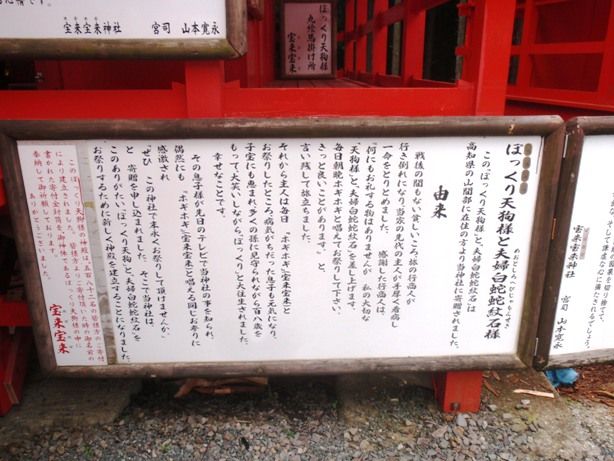 宝来宝来神社
宮司 山本寛永
ぽっくり天狗様
丸絵馬掛け所
宝来宝来
ぽっくり天狗様と夫婦白蛇蛇紋石様
めおとしろへびじゃもんせき
この「ぽっくり天狗様」と「夫婦白蛇蛇紋石」は
高知県の山間部に在住の方より当神社に寄贈されました。
由来
戦後の間もない貧しいころ、旅の行商人が
行き倒れになり、当家の先代の主人が手厚く看病し
一命をとりとめました。 感謝した行商人は、
「何にもお礼する物はありませんが 私の大切な
「天狗様」と、「夫婦白蛇蛇紋石」を差し上げます。
毎日朝晩ホギホギと唱えてお祭りして下さい、
きっと良いことがあります」 と、
言い残して旅立ちました。
それから主人は毎日 「ホギホギ」(宝来宝来)と
お祭りしたところ、病気がちだった息子も元気になり、
子宝にも恵まれ、多くの孫に見守られながら百八歳を
もって、大笑いしながら、「ぽっくり」と大往生されました。
幸せなことです。
その息子様が先日のテレビで当神社の事を知られ、
偶然にも 「ホギホギ」(宝来宝来)と唱える同じお祭りに
感激され
「ぜひ この神社で末永くお祭りして頂けませんか」
と 寄贈を申し込まれました。 そこで当神社は、
このありがたい、「ぽっくり天狗」と、「夫婦白蛇蛇紋石」を
お祭りするために新しく神殿を建立することになりました。
このぽっくり天狗様の神殿は、五百八十二名の皆様方のご寄付
により建立されました。
ありがとうございました。
宝来宝来
宝来宝来神社
宮司 山本寛永